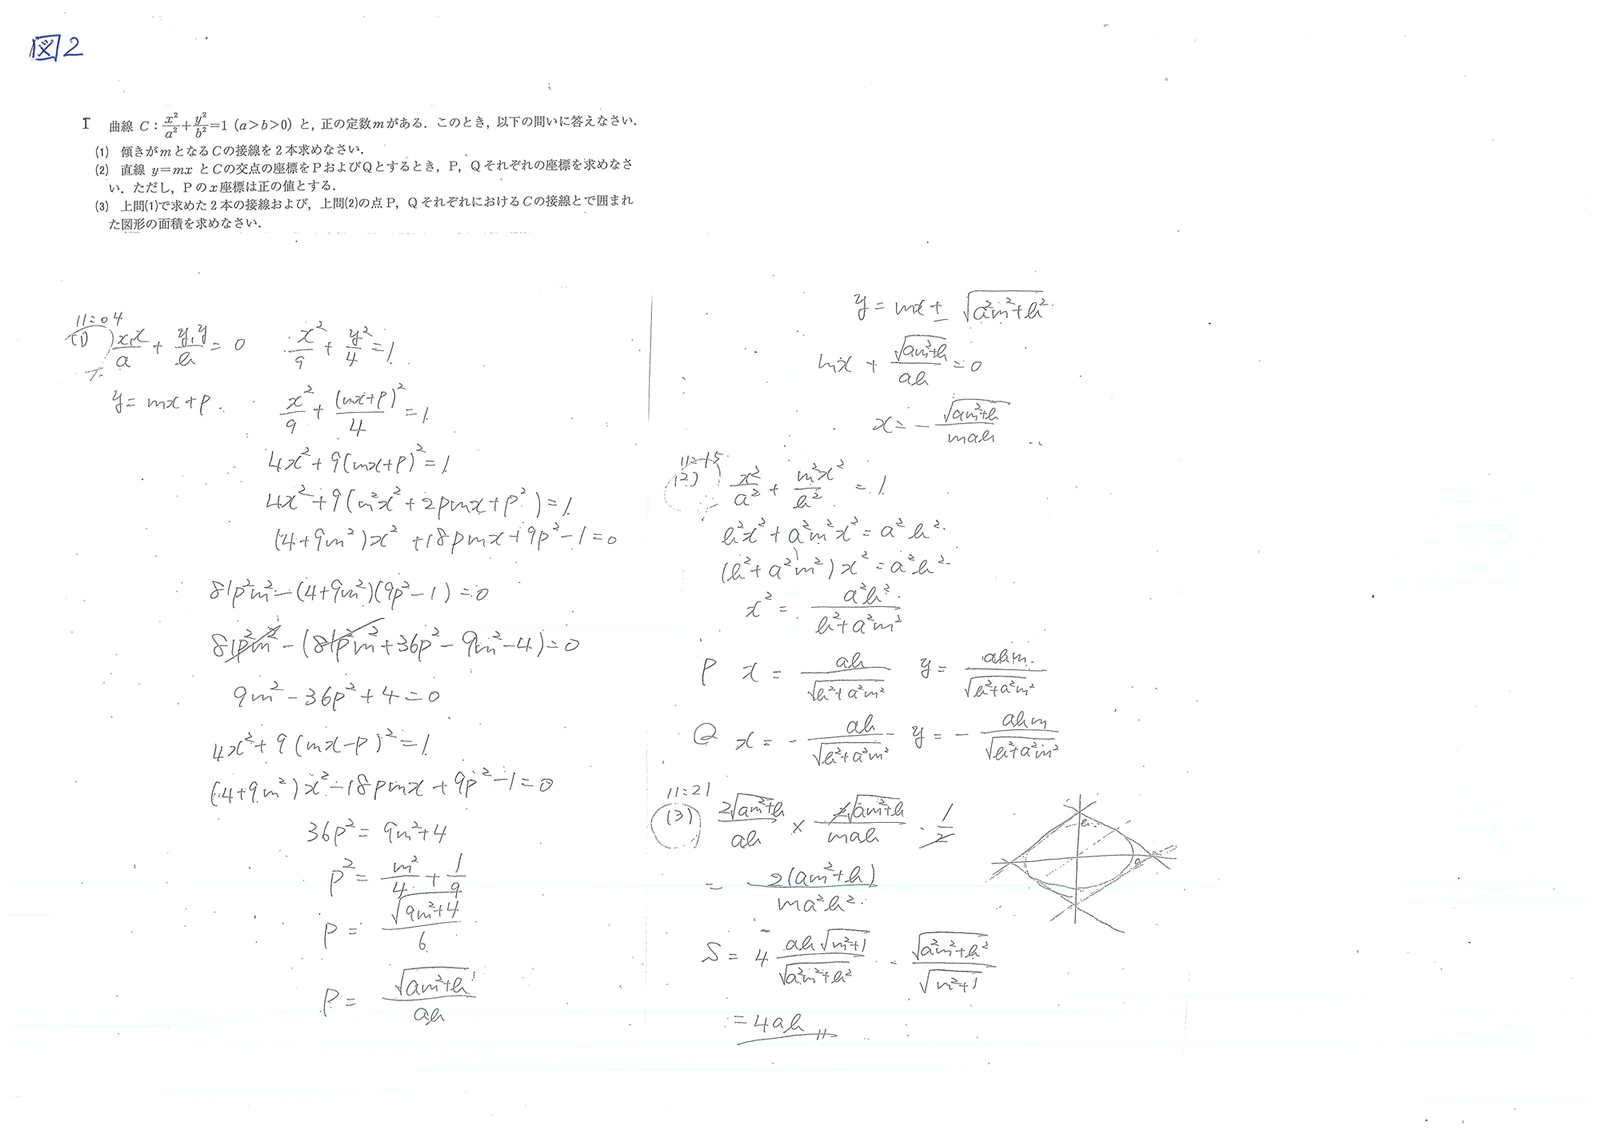 図2
I 曲線 C：x²/a²+y²/b²=1 (a>b>0) と，正の定数mがある．このとき，以下の問いに答えなさい．
(1) 傾きがmとなるCの接線を2本求めなさい．
(2) 直線 y=mx とCの交点の座標をPおよびQとするとき，P，Qそれぞれの座標を求めなさ
い．ただし，Pのx座標は正の値とする．
(3) 上問(1)で求めた2本の接線および，上問(2)の点P，QそれぞれにおけるCの接線とで囲まれ
た図形の面積を求めなさい．
11=04
(1) x₁x/a + y₁y/b = 0
x²/9 + y²/4 = 1
y = mx+p.
x²/9 + (mx+p)²/4 = 1
4x²+9(mx+p)²=1
4x²+9(m²x²+2pmx+p²)=1
(4+9m²)x²+18pmx+9p²-1=0
81p²m²-(4+9m²)(9p²-1)=0
81p²m²-(81p²m²+36p²-9m²-4)=0
9m²-36p²+4=0
4x²+9(mx-p)²=1
(4+9m²)x²-18pmx+9p²-1=0
36p²=9m²+4
p²=m²/4+1/9
p=√(9m²+4)/6
p=√(am²+b)/ab
y=mx±√(a²m²+b²)
mx+√(am²+b)/ab=0
x=-√(am²+b)/mab
11=15
(2) x²/a²+m²x²/b²=1
b²x²+a²m²x²=a²b²
(b²+a²m²)x²=a²b²
x²=a²b²/(b²+a²m²)
P x=ab/√(b²+a²m²) y=abm/√(b²+a²m²)
Q x=-ab/√(b²+a²m²) y=-abm/√(b²+a²m²)
11=21
(3) 2√(am²+b)/ab × 2√(am²+b)/mab · 1/2
=2(am²+b)/ma²b²
S=4 ab√(m²+1)/√(a²m²+b²) · √(a²m²+b²)/√(m²+1)
=4ab